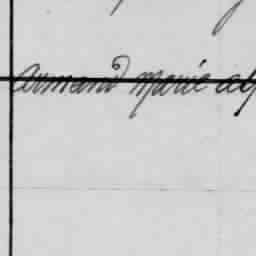 Armand Marie